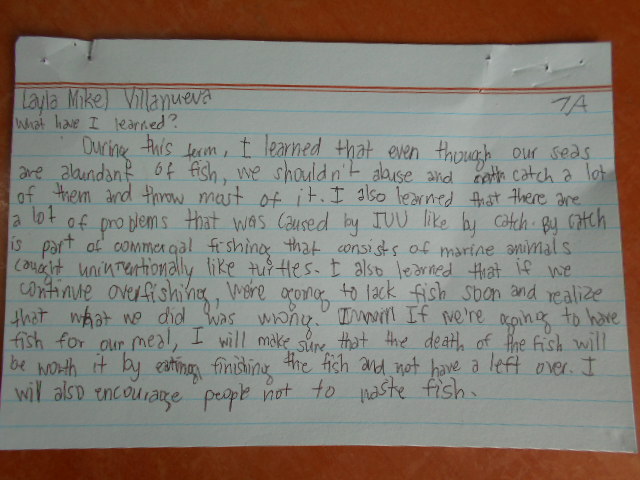 Layla Mikel Villanueva 7A
What have I learned?
During this term, I learned that even though our seas
are abundant of fish, we shouldn't abuse and catch a lot
of them and throw most of it. I also learned that there are
a lot of problems that was caused by IUU like by catch. By catch
is part of commercial fishing that consists of marine animals
caught unintentionally like turtles. I also learned that if we
continue overfishing, we're going to lack fish soon and realize
that what we did was wrong. If we're going to have
fish for our meal, I will make sure that the death of the fish will
be worth it by finishing the fish and not have a left over. I
will also encourage people not to waste fish.